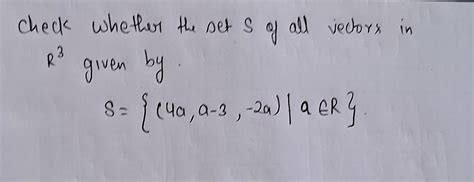 Check whether the set S of all vectors in
R³ given by.
S = { (4a, a-3, -2a) | a ∈ R }.